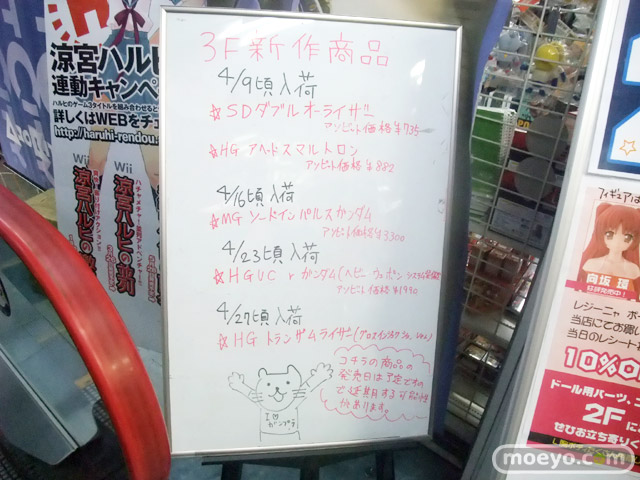 3F新作商品
4/9頃入荷
☆SDダブルオーライザー
アソビット価格¥735
☆HG アヘッドスマルトロン
アソビット価格¥882
4/16頃入荷
☆MG ソードインパルスガンダム
アソビット価格¥3300
4/23頃入荷
☆HGUC νガンダム(ヘビーウェポンシステム装備型
アソビット価格¥1990
4/27頃入荷
☆HG トランザムライザー(グロスインジェクションVer)
コチラの商品の
発売日は予定ですの
で延期する可能性
があります。
I♡
ガンプラ
涼宮ハルヒ
連動キャンペ
ハルヒのゲーム3タイトルを組み合わせると
詳しくはWEBをチェ
http://haruhi-rendou.
Wii
涼宮ハルヒの並列
Wii
涼宮ハルヒの激動
フィギュアは
向坂 環
好評発売中!
レジーニャ ボー
当店にてお買し
当日のレシート
10%O
ドール用パーツ、コ
2Fに
ぜひお立ち寄りく
moeyo.com